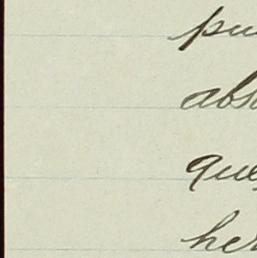 pu
abs
que
her